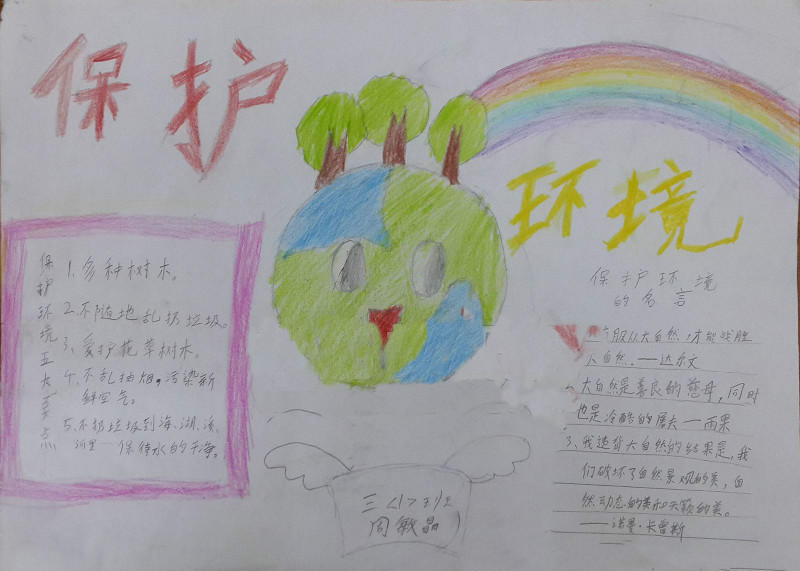 保护
环境
保护环境五大要点
1.多种树木。
2.不随地乱扔垃圾。
3、爱护花草树木。
4、不乱抽烟,污染新
鲜空气。
5.不扔垃圾到海、湖、溪、
河里一保持水的干净。
保护环境
的名言
服从大自然,才能战胜
大自然.——达尔文
大自然是善良的慈母,同时
也是冷酷的屠夫—雨果
3、我违背大自然的结果是,我
们破坏了自然景观的美,自
然动态的美和天籁的美。
——诺曼·卡曾斯
三<1>班
周敏晶